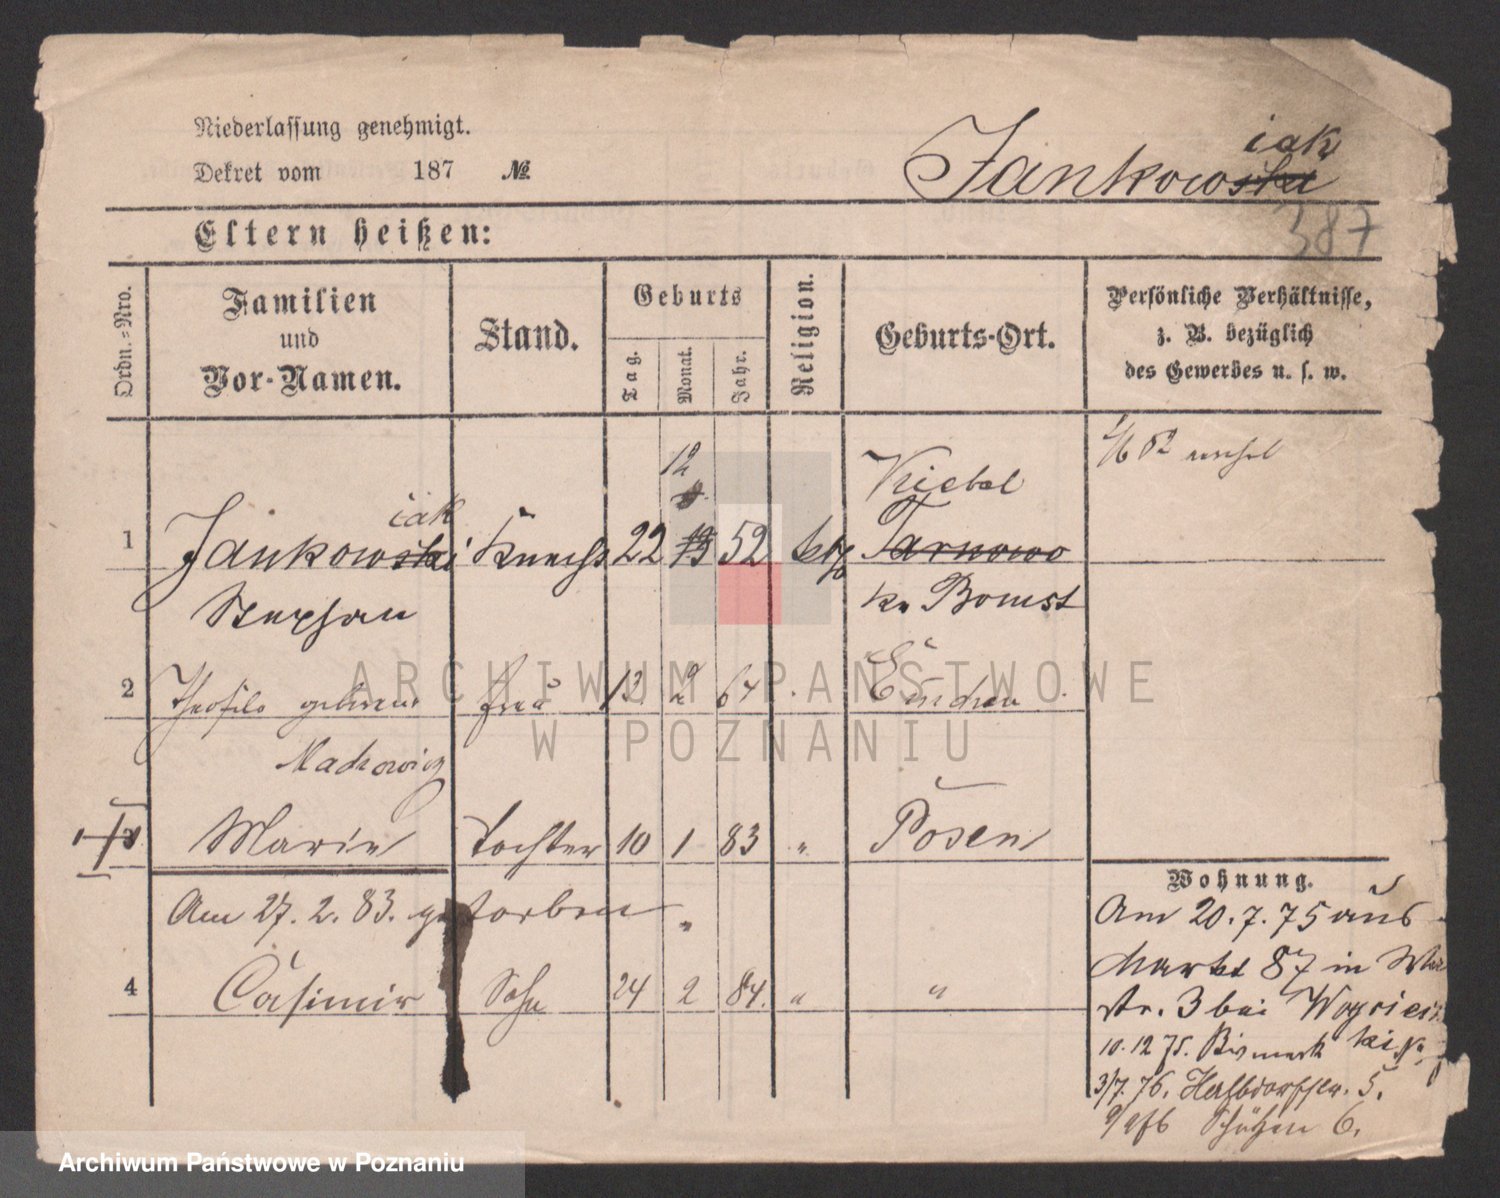 Niederlassung genehmigt.
Dekret vom 187 №
Jankowski iak
387
Eltern heißen:
Ordn.-Nro.
Familien und Vor-Namen.
Stand.
Geburts
Tag.
Monat.
Jahr.
Religion.
Geburts-Ort.
Persönliche Verhältnisse, z. B. bezüglich des Gewerbes u. s. w.
12
Kiebel
1 Jankowski iak Knecht 22 52 kth Tarnowo
Stephan
Kr. Bomst
2 Theofile geborene Frau 13. 2 64
Machowicz
3 Marie Tochter 10 1 83 " Posen
Am 27. 2. 83. gestorben "
4 Casimir Sohn 24 2 84. " "
Wohnung.
Am 20. 7. 75 aus
Markt 87 in
str. 3 bei
10. 12 75. Bismark
3/7. 76. Halbdorfstr. 5.
Schützen 6.
ARCHIWUM PAŃSTWOWE
W POZNANIU
Archiwum Państwowe w Poznaniu